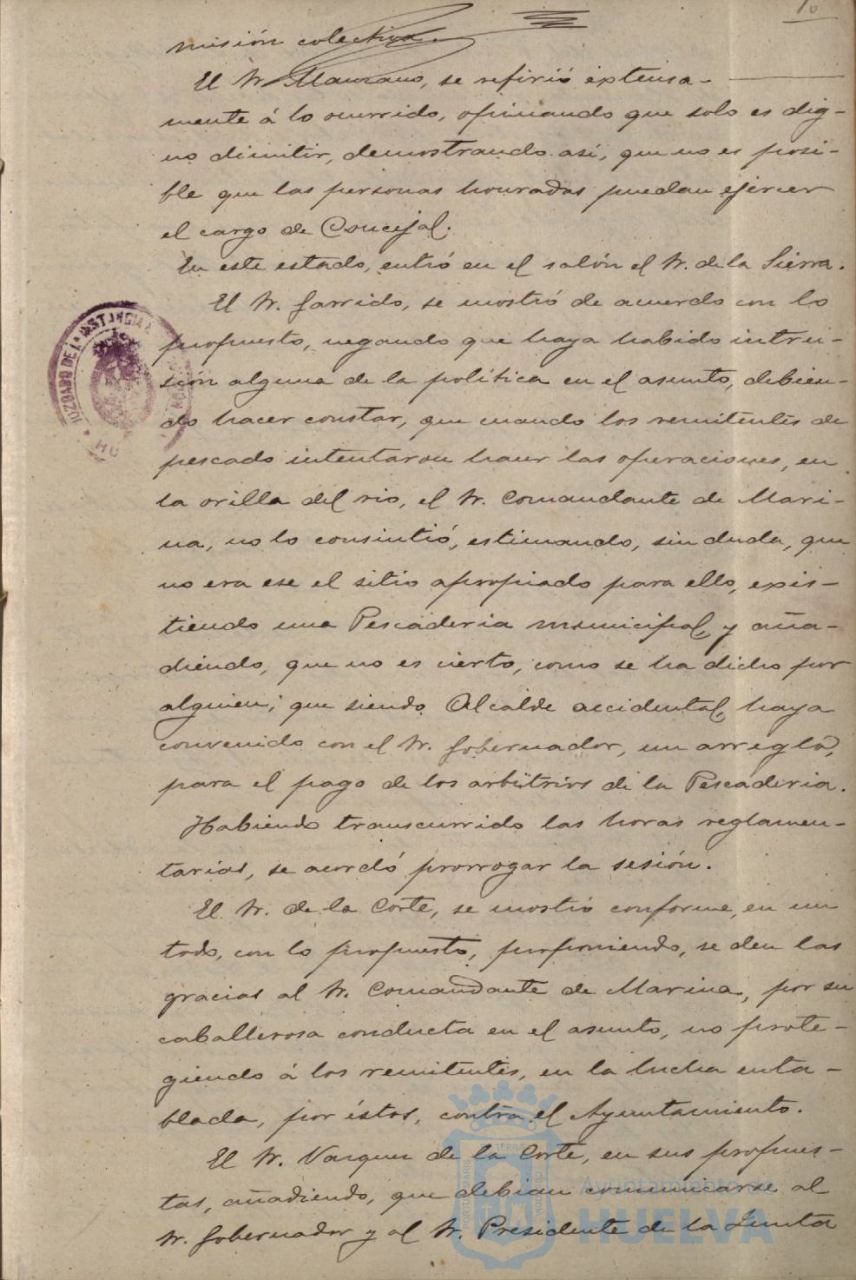 10
misión colectiva.
El Sr. Manzano, se refirió extensa-
mente á lo ocurrido, opinando que solo es dig-
no dimitir, demostrando así, que no es posi-
ble que las personas honradas puedan ejercer
el cargo de Concejal.
En este estado, entró en el salón el Sr. de la Sierra.
El Sr. Garrido, se mostró de acuerdo con lo
propuesto, negando que haya habido intru-
sión alguna de la política en el asunto, debien-
do hacer constar, que cuando los remitentes de
pescado intentaron hacer las operaciones, en
la orilla del rio, el Sr. Comandante de Mari-
na, no lo consintió, estimando, sin duda, que
no era ese el sitio apropiado para ello, exis-
tiendo una Pescaderia municipal, y aña-
diendo, que no es cierto, como se ha dicho por
alguien; que siendo Alcalde accidental, haya
convenido con el Sr. Gobernador, un arreglo,
para el pago de los arbitrios de la Pescaderia.
Habiendo transcurrido las horas reglamen-
tarias, se acordó prorrogar la sesión.
El Sr. de la Corte, se mostró conforme, en un
todo, con lo propuesto, proponiendo, se den las
gracias al Sr. Comandante de Marina, por su
caballerosa conducta en el asunto, no prote-
giendo á los remitentes, en la lucha enta-
blada, por éstos, contra el Ayuntamiento.
El Sr. Vazquez de la Corte, en sus propues-
tas, añadiendo, que debian comunicarse al
Sr. Gobernador y al Sr. Presidente de la Junta
JUZGADO DE 1ª INSTANCIA
HU
Ayuntamiento de
HUELVA